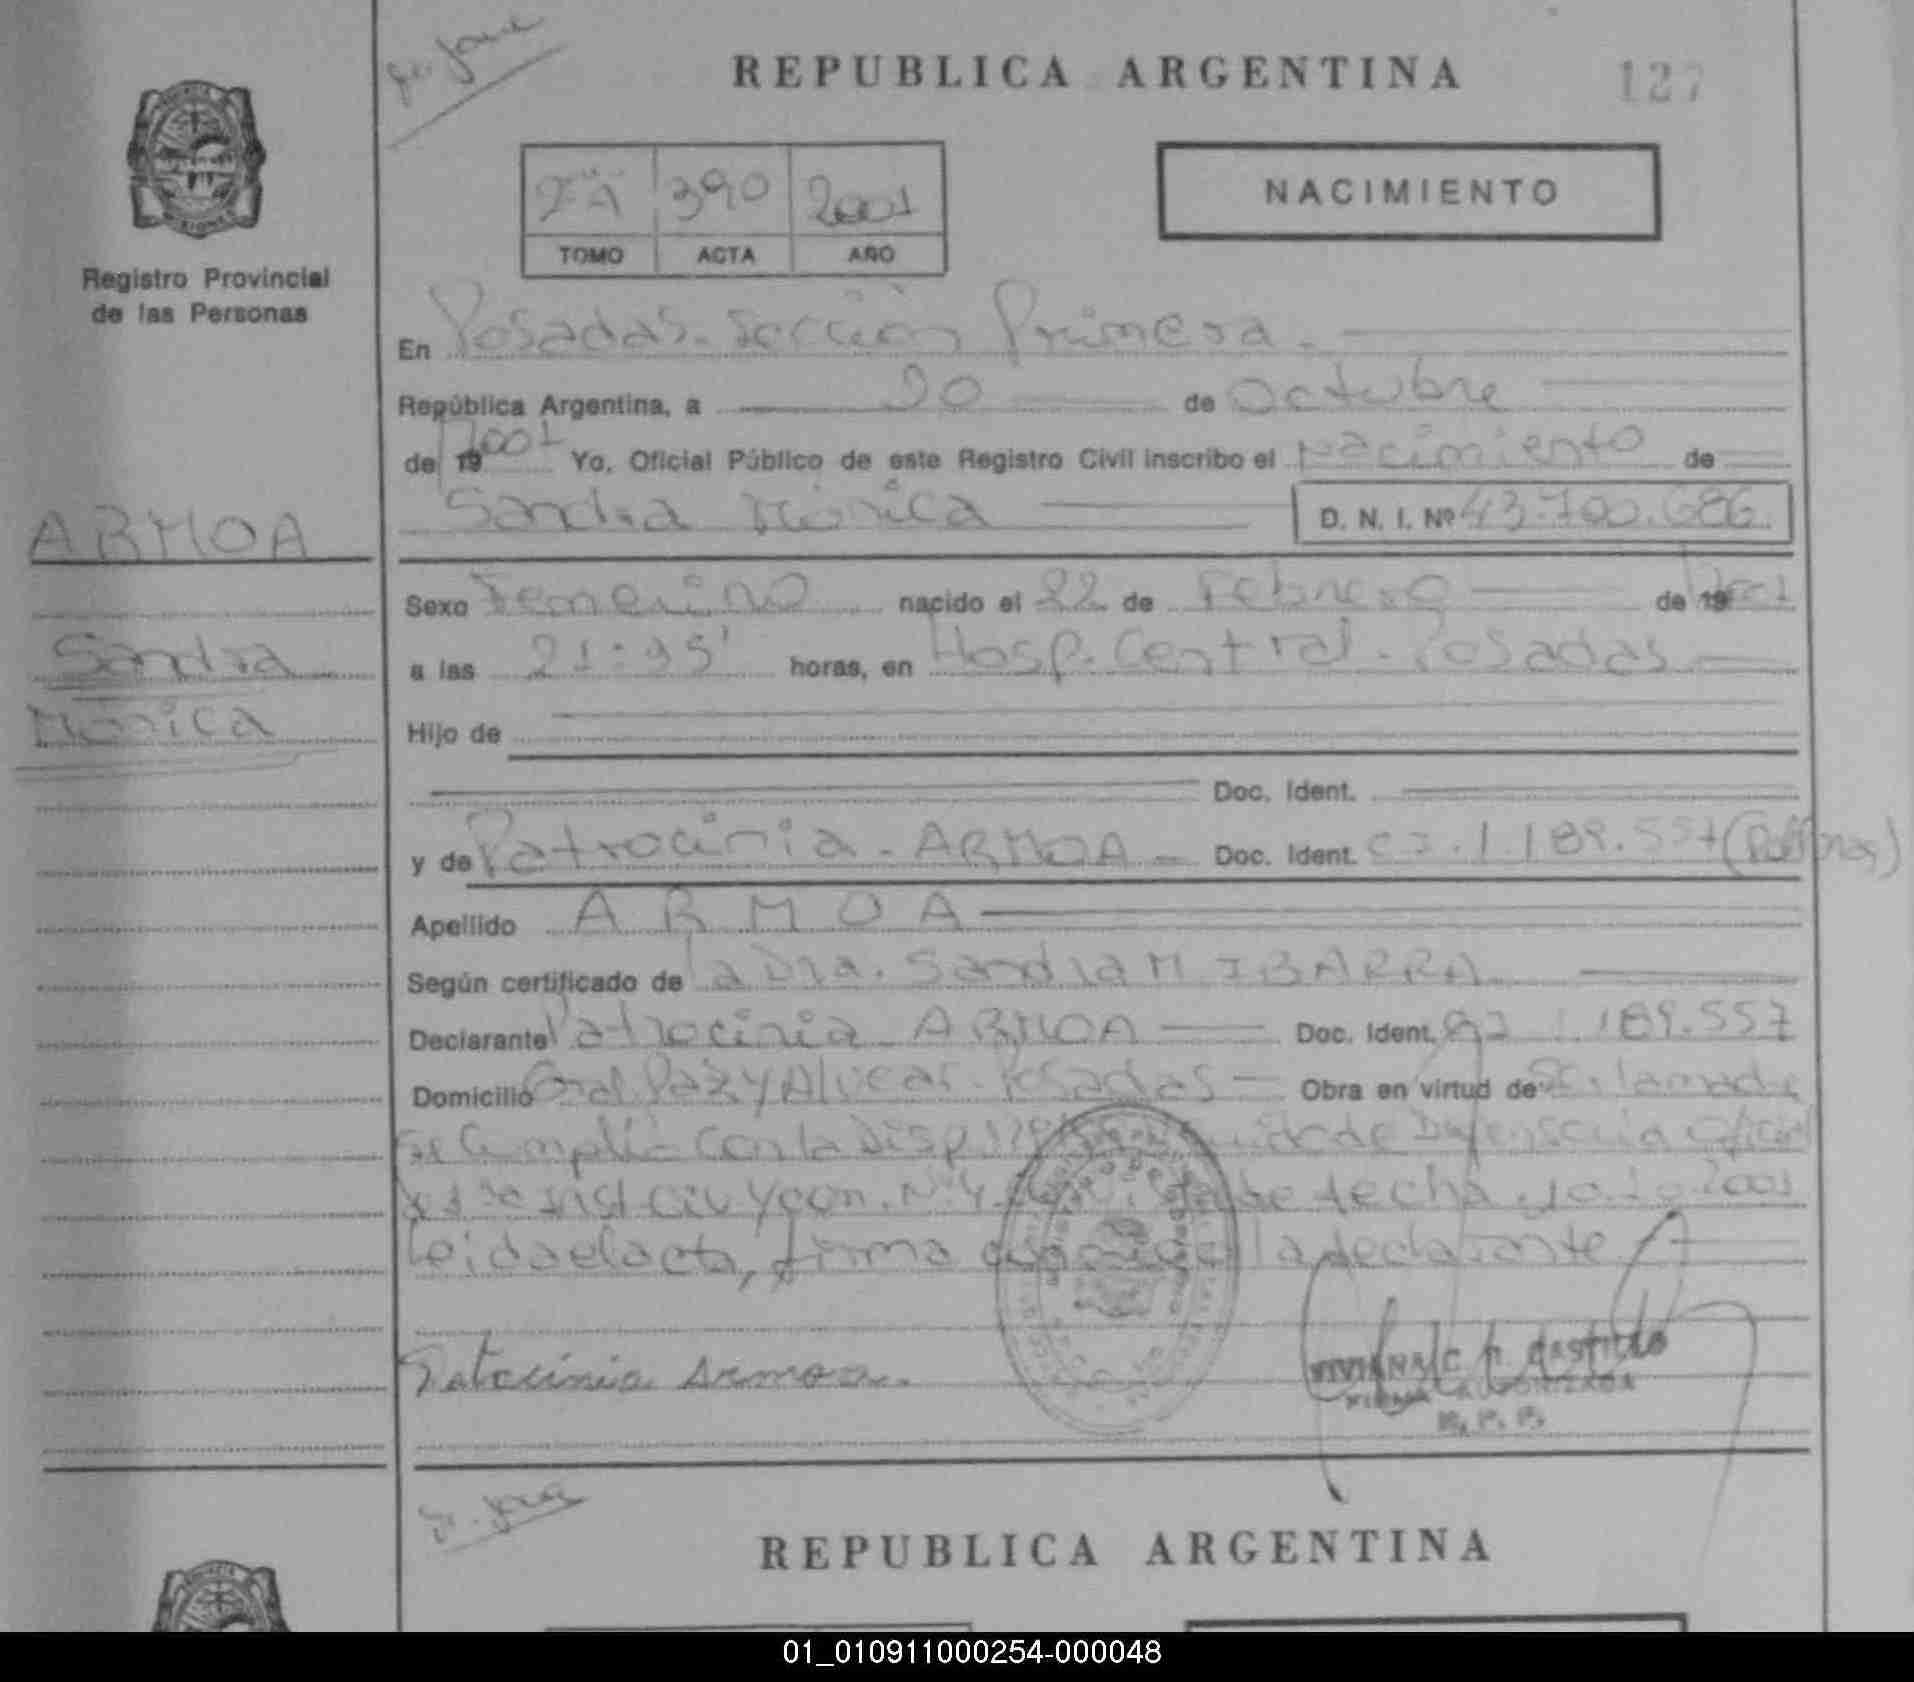 REPUBLICA ARGENTINA
127
2ºA 390 2001
TOMO ACTA AÑO
NACIMIENTO
Registro Provincial
de las Personas
En Posadas. Sección Primera.
República Argentina, a de Octubre
de 19 2001 Yo, Oficial Público de este Registro Civil inscribo el nacimiento de
Sandra Mónica D. N. I. Nº 43.700.686
ARMOA
Sandra
Mónica
Sexo Femenino nacido el 22 de Febrero de 19 2001
a las horas, en Hosp. Central. Posadas
Hijo de
Doc. Ident.
y de Patrocinia - ARMOA - Doc. Ident. 1.189.557
Apellido ARMOA
Según certificado de la Dra. Sandra M IBARRA
Declarante Patrocinia ARMOA Doc. Ident. 1.189.557
Domicilio Gral. Paz y Alvear. Posadas Obra en virtud de
se cumplió con la Disp. de Defensoria Oficial
Inst Civ y Com. Nº 4 de fecha 2001
Leida el acta, firma la declarante
Patrocinia Armoa.
VIVIANA C. CASTILLO
FIRMA AUTORIZADA
R. P. P.
REPUBLICA ARGENTINA
01_010911000254-000048